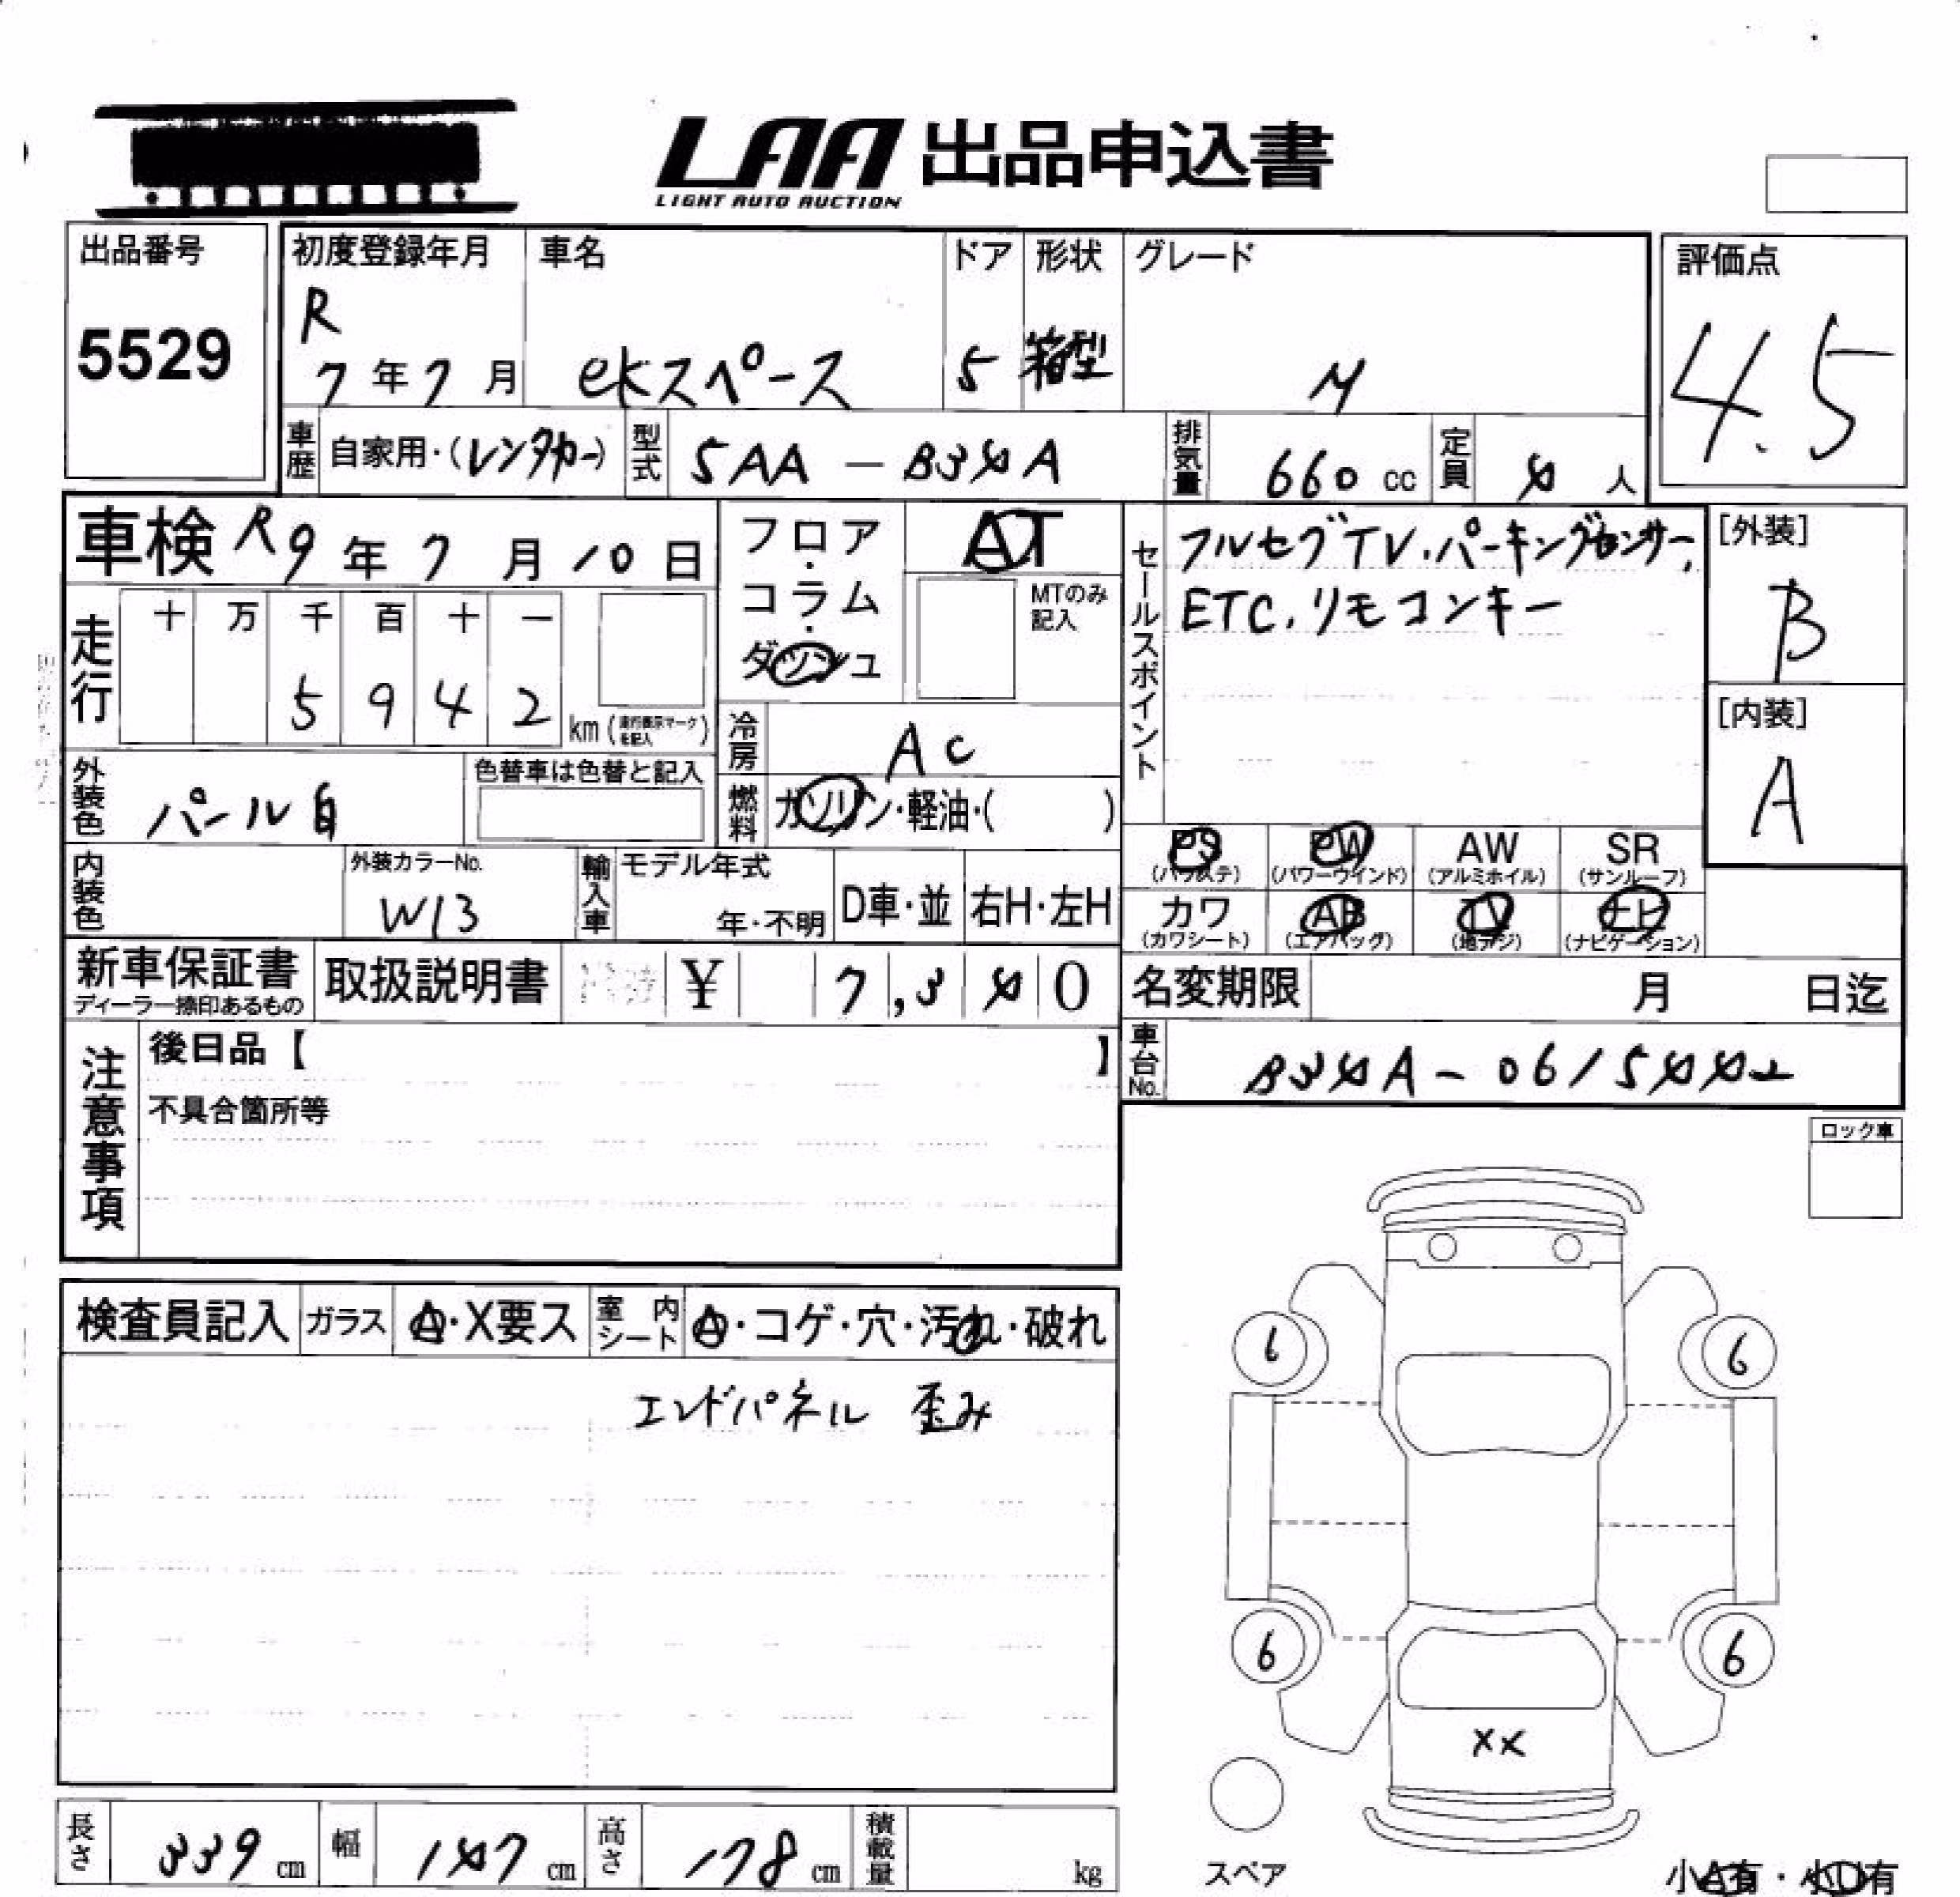 LAA 出品申込書
LIGHT AUTO AUCTION
出品番号
5529
初度登録年月
R
7年7月
車名
ekスペース
ドア
5
形状
箱型
グレード
M
評価点
4.5
車歴 自家用・(レンタカー)
型式 5AA-B34A
排気量 660 cc
定員 4 人
車検 R9年7月10日
フロア・コラム・ダッシュ
AT
MTのみ記入
セールスポイント
フルセグTV.パーキングセンサー,
ETC.リモコンキー
[外装]
B
[内装]
A
走行
十 万 千 百 十 一
5 9 4 2 km (走行表示マークを記入)
冷房 AC
燃料 ガソリン・軽油・( )
外装色 パール白
色替車は色替と記入
内装色
外装カラーNo.
W13
輸入車
モデル年式
年・不明
D車・並
右H・左H
PS (パワステ)
PW (パワーウインド)
AW (アルミホイル)
SR (サンルーフ)
カワ (カワシート)
AB (エアバッグ)
TV (地デジ)
ナビ (ナビゲーション)
新車保証書
ディーラー捺印あるもの
取扱説明書
¥ 7,340
名変期限 月 日迄
車台No. B34A-0615442
注意事項
後日品【 】
不具合箇所等
ロック車
検査員記入 ガラス A・X要ス 室内シート A・コゲ・穴・汚れ・破れ
エンドパネル 歪み
6
6
6
6
XX
スペア
長さ 339 cm 幅 147 cm 高さ 178 cm 積載量 kg
小A有・小U有